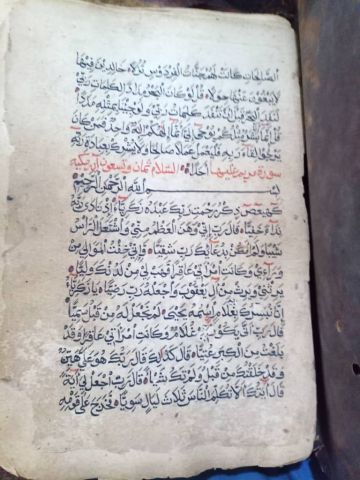 الصالحات كانت لهم جنات الفردوس نزلا خالدين فيها
لا يبغون عنها حولا قل لو كان البحر مدادا لكلمات ربي
لنفد البحر قبل ان تنفد كلمات ربي ولو جئنا بمثله مددا
قل انما انا بشر مثلكم يوحى الي انما الهكم اله واحد فمن كان
يرجوا لقاء ربه فليعمل عملا صالحا ولا يشرك بعبادة ربه
احدا سورة مريم عليها السلام ثمان وتسعون اية مكية
بسم الله الرحمن الرحيم
كهيعص ذكر رحمت ربك عبده زكريا اذ نادى ربه
نداء خفيا قال رب اني وهن العظم مني واشتعل الراس
شيبا ولم اكن بدعائك رب شقيا واني خفت الموالي من
وراءي وكانت امراتي عاقرا فهب لي من لدنك وليا
يرثني ويرث من ال يعقوب واجعله رب رضيا يا زكريا
انا نبشرك بغلام اسمه يحيى لم نجعل له من قبل سميا
قال رب انى يكون لي غلام وكانت امراتي عاقرا وقد
بلغت من الكبر عتيا قال كذلك قال ربك هو علي هين
وقد خلقتك من قبل ولم تك شيئا قال رب اجعل لي اية
قال ايتك الا تكلم الناس ثلاث ليال سويا فخرج على قومه